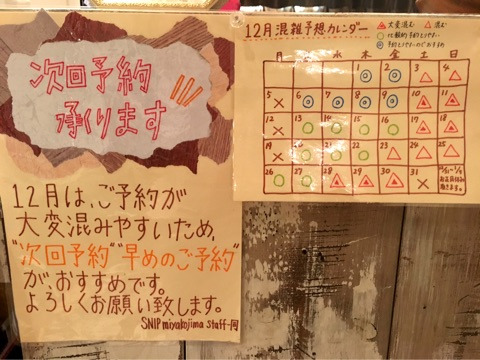 次回予約
承ります
12月は、ご予約が
大変混みやすいため、
"次回予約" "早めのご予約"
が、おすすめです。
よろしくお願い致します。
SNIP miyakojima staff一同
12月混雑予想カレンダー
大変混む
混む
比較的予約とりやすい
予約とりやすいのでおすすめ
月 火 水 木 金 土 日
1 2 3 4
5 6 7 8 9 10 11
12 13 14 15 16 17 18
19 20 21 22 23 24 25
26 27 28 29 30 31